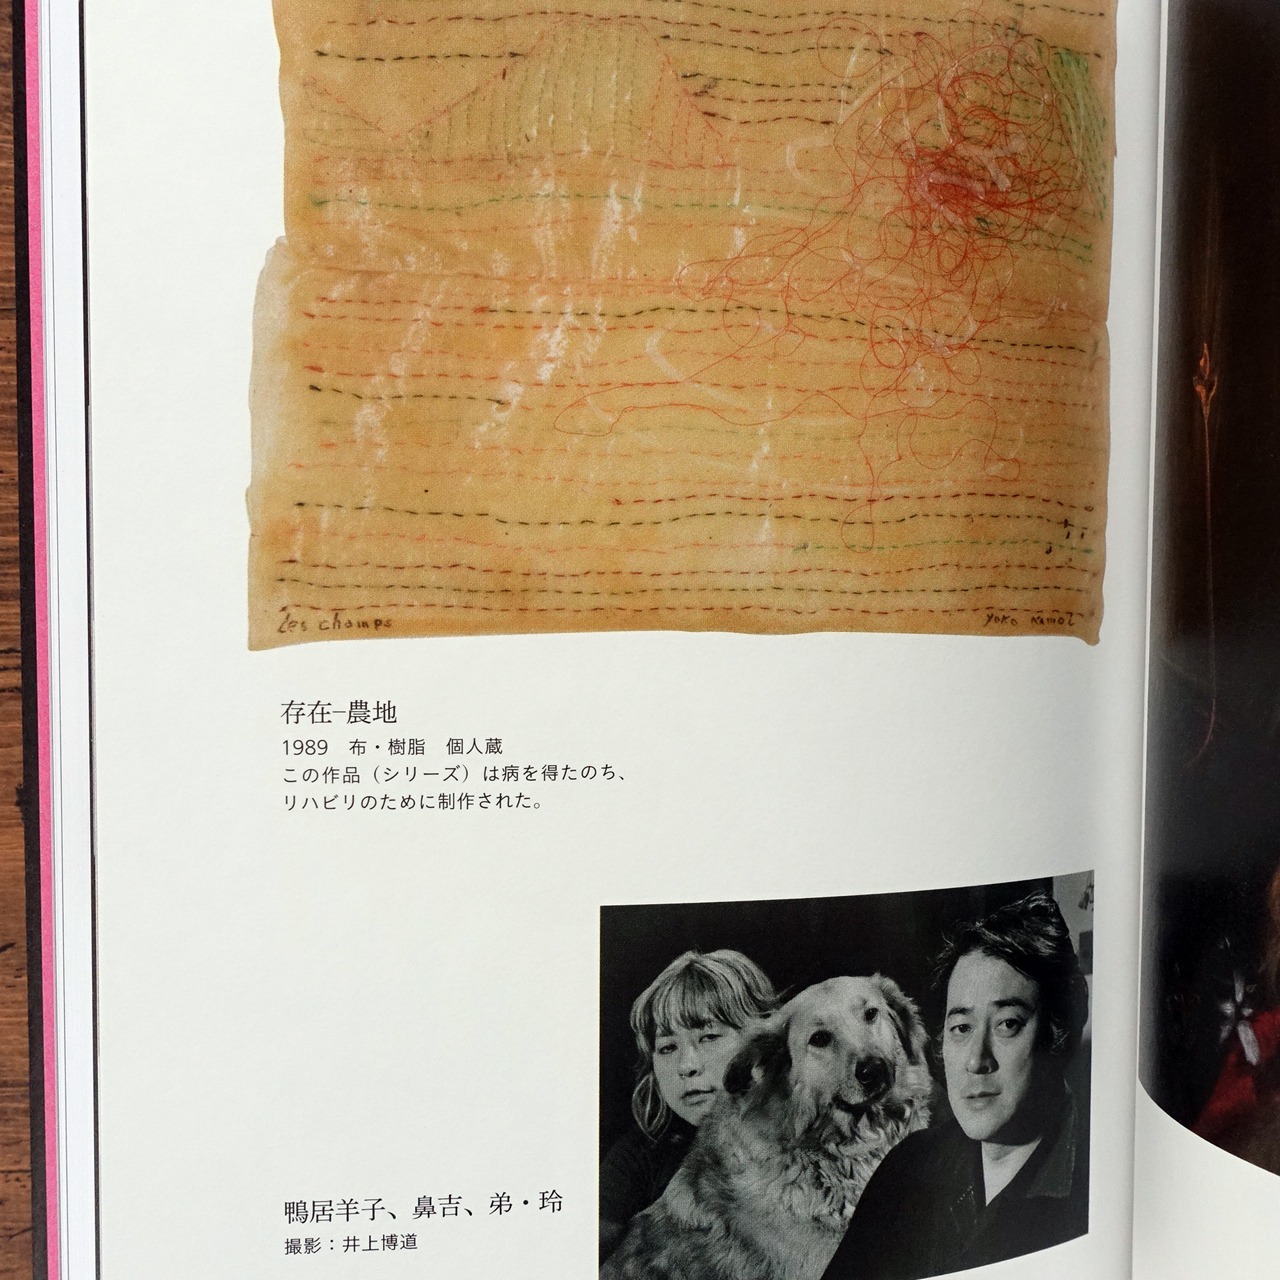 Les champs
Yoko Kamoi
存在−農地
1989　布・樹脂　個人蔵
この作品（シリーズ）は病を得たのち、
リハビリのために制作された。
鴨居羊子、鼻吉、弟・玲
撮影：井上博道